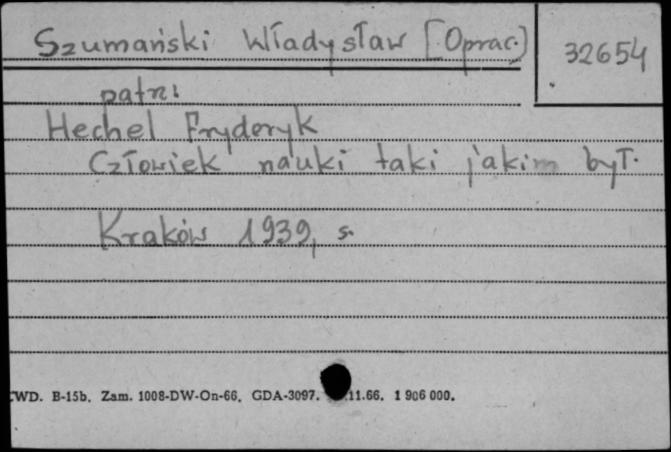 Szumański Władysław [Oprac.]
32654
patrz:
Hechel Fryderyk
Człowiek nauki taki jakim był.
Kraków 1939, s.
WD. B-15b. Zam. 1008-DW-On-66. GDA-3097. 11.66. 1 906 000.